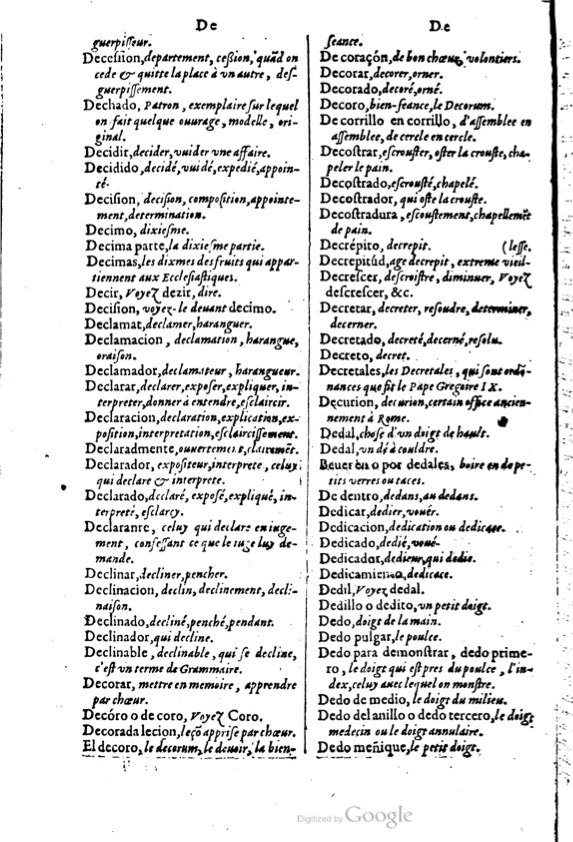 De
guerpiſſeur.
Deceſſion, departement, ceßion, quãd on
cede & quitte la place à vn autre, deſ-
guerpiſſement.
Dechado, Patron, exemplaire ſur lequel
on fait quelque ouurage, modelle, ori-
ginal.
Decidir, decider, vuider vne affaire.
Decidido, decidé, vuidé, expedié, appoin-
té.
Deciſion, deciſion, compoſition, appointe-
ment, determination.
Decimo, dixieſme.
Decima parte, la dixieſme partie.
Decimas, les dixmes des fruits qui appar-
tiennent aux Eccleſiaſtiques.
Decir, Voyez dezir, dire.
Deciſion, voyez-le deuant decimo.
Declamat, declamer, haranguer.
Declamacion, declamation, harangue,
oraiſon.
Declamador, declamateur, harangueur.
Declarar, declarer, expoſer, expliquer, in-
terpreter, donner à entendre, eſclaircir.
Declaracion, declaration, explication, ex-
poſition, interpretation, eſclairciſſement.
Declaradmente, ouuertement, clairemẽt.
Declarador, expoſiteur, interprete, celuy
qui declare & interprete.
Declarado, declaré, expoſé, expliqué, in-
terpreté, eſclarcy.
Declarante, celuy qui declare en iuge-
ment, confeſſant ce que le iuge luy de-
mande.
Declinar, decliner, pencher.
Declinacion, declin, declinement, decli-
naiſon.
Declinado, decliné, penché, pendant.
Declinador, qui decline.
Declinable, declinable, qui ſe decline,
c'eſt vn terme de Grammaire.
Decorar, mettre en memoire, apprendre
par chœur.
Decóro o de coro, Voyez Coro.
Decorada lecion, leçõ appriſe par chœur.
El decoro, le decorum, le deuoir, la bien-
De
ſeance.
De coraçón, de bon chœur, volontiers.
Decorar, decorer, orner.
Decorado, decoré, orné.
Decoro, bien-ſeance, le Decorum.
De corrillo en corrillo, d'aſſemblee en
aſſemblee, de cercle en cercle.
Decoſtrar, eſcrouſter, oſter la crouſte, cha-
peler le pain.
Decoſtrado, eſcrouſté, chapelé.
Decoſtrador, qui oſte la crouſte.
Decoſtradura, eſcouſtement, chapellemẽt
de pain.
Decrépito, decrepit. (leſſe.
Decrepitúd, age decrepit, extreme vieil-
Decreſcer, deſcroiſtre, diminuer, Voyez
deſcreſcer, &c.
Decretar, decreter, reſoudre, determiner,
decerner.
Decretado, decreté, decerné, reſolu.
Decreto, decret.
Decretales, les Decretales, qui ſont ordõ-
nances que fit le Pape Gregoire IX.
Decurion, decurion, certain office ancien-
nement à Rome.
Dedal, choſe d'vn doigt de hault.
Dedal, vn dé à couldre.
Beuer en o por dedales, boire en de pe-
tits verres ou taces.
De dentro, dedans, au dedans.
Dedicar, dedier, vouër.
Dedicacion, dedication ou dedicace.
Dedicado, dedié, voué.
Dedicador, dedieur, qui dedie.
Dedicamiento, dedicace.
Dedil, Voyez dedal.
Dedillo o dedito, vn petit doigt.
Dedo, doigt de la main.
Dedo pulgar, le poulce.
Dedo para demonſtrar, dedo prime-
ro, le doigt qui eſt pres du poulce, l'in-
dex, celuy auec lequel on monſtre.
Dedo de medio, le doigt du milieu.
Dedo del anillo o dedo tercero, le doigt
medecin ou le doigt annulaire.
Dedo meñique, le petit doigt.
Digitized by Google